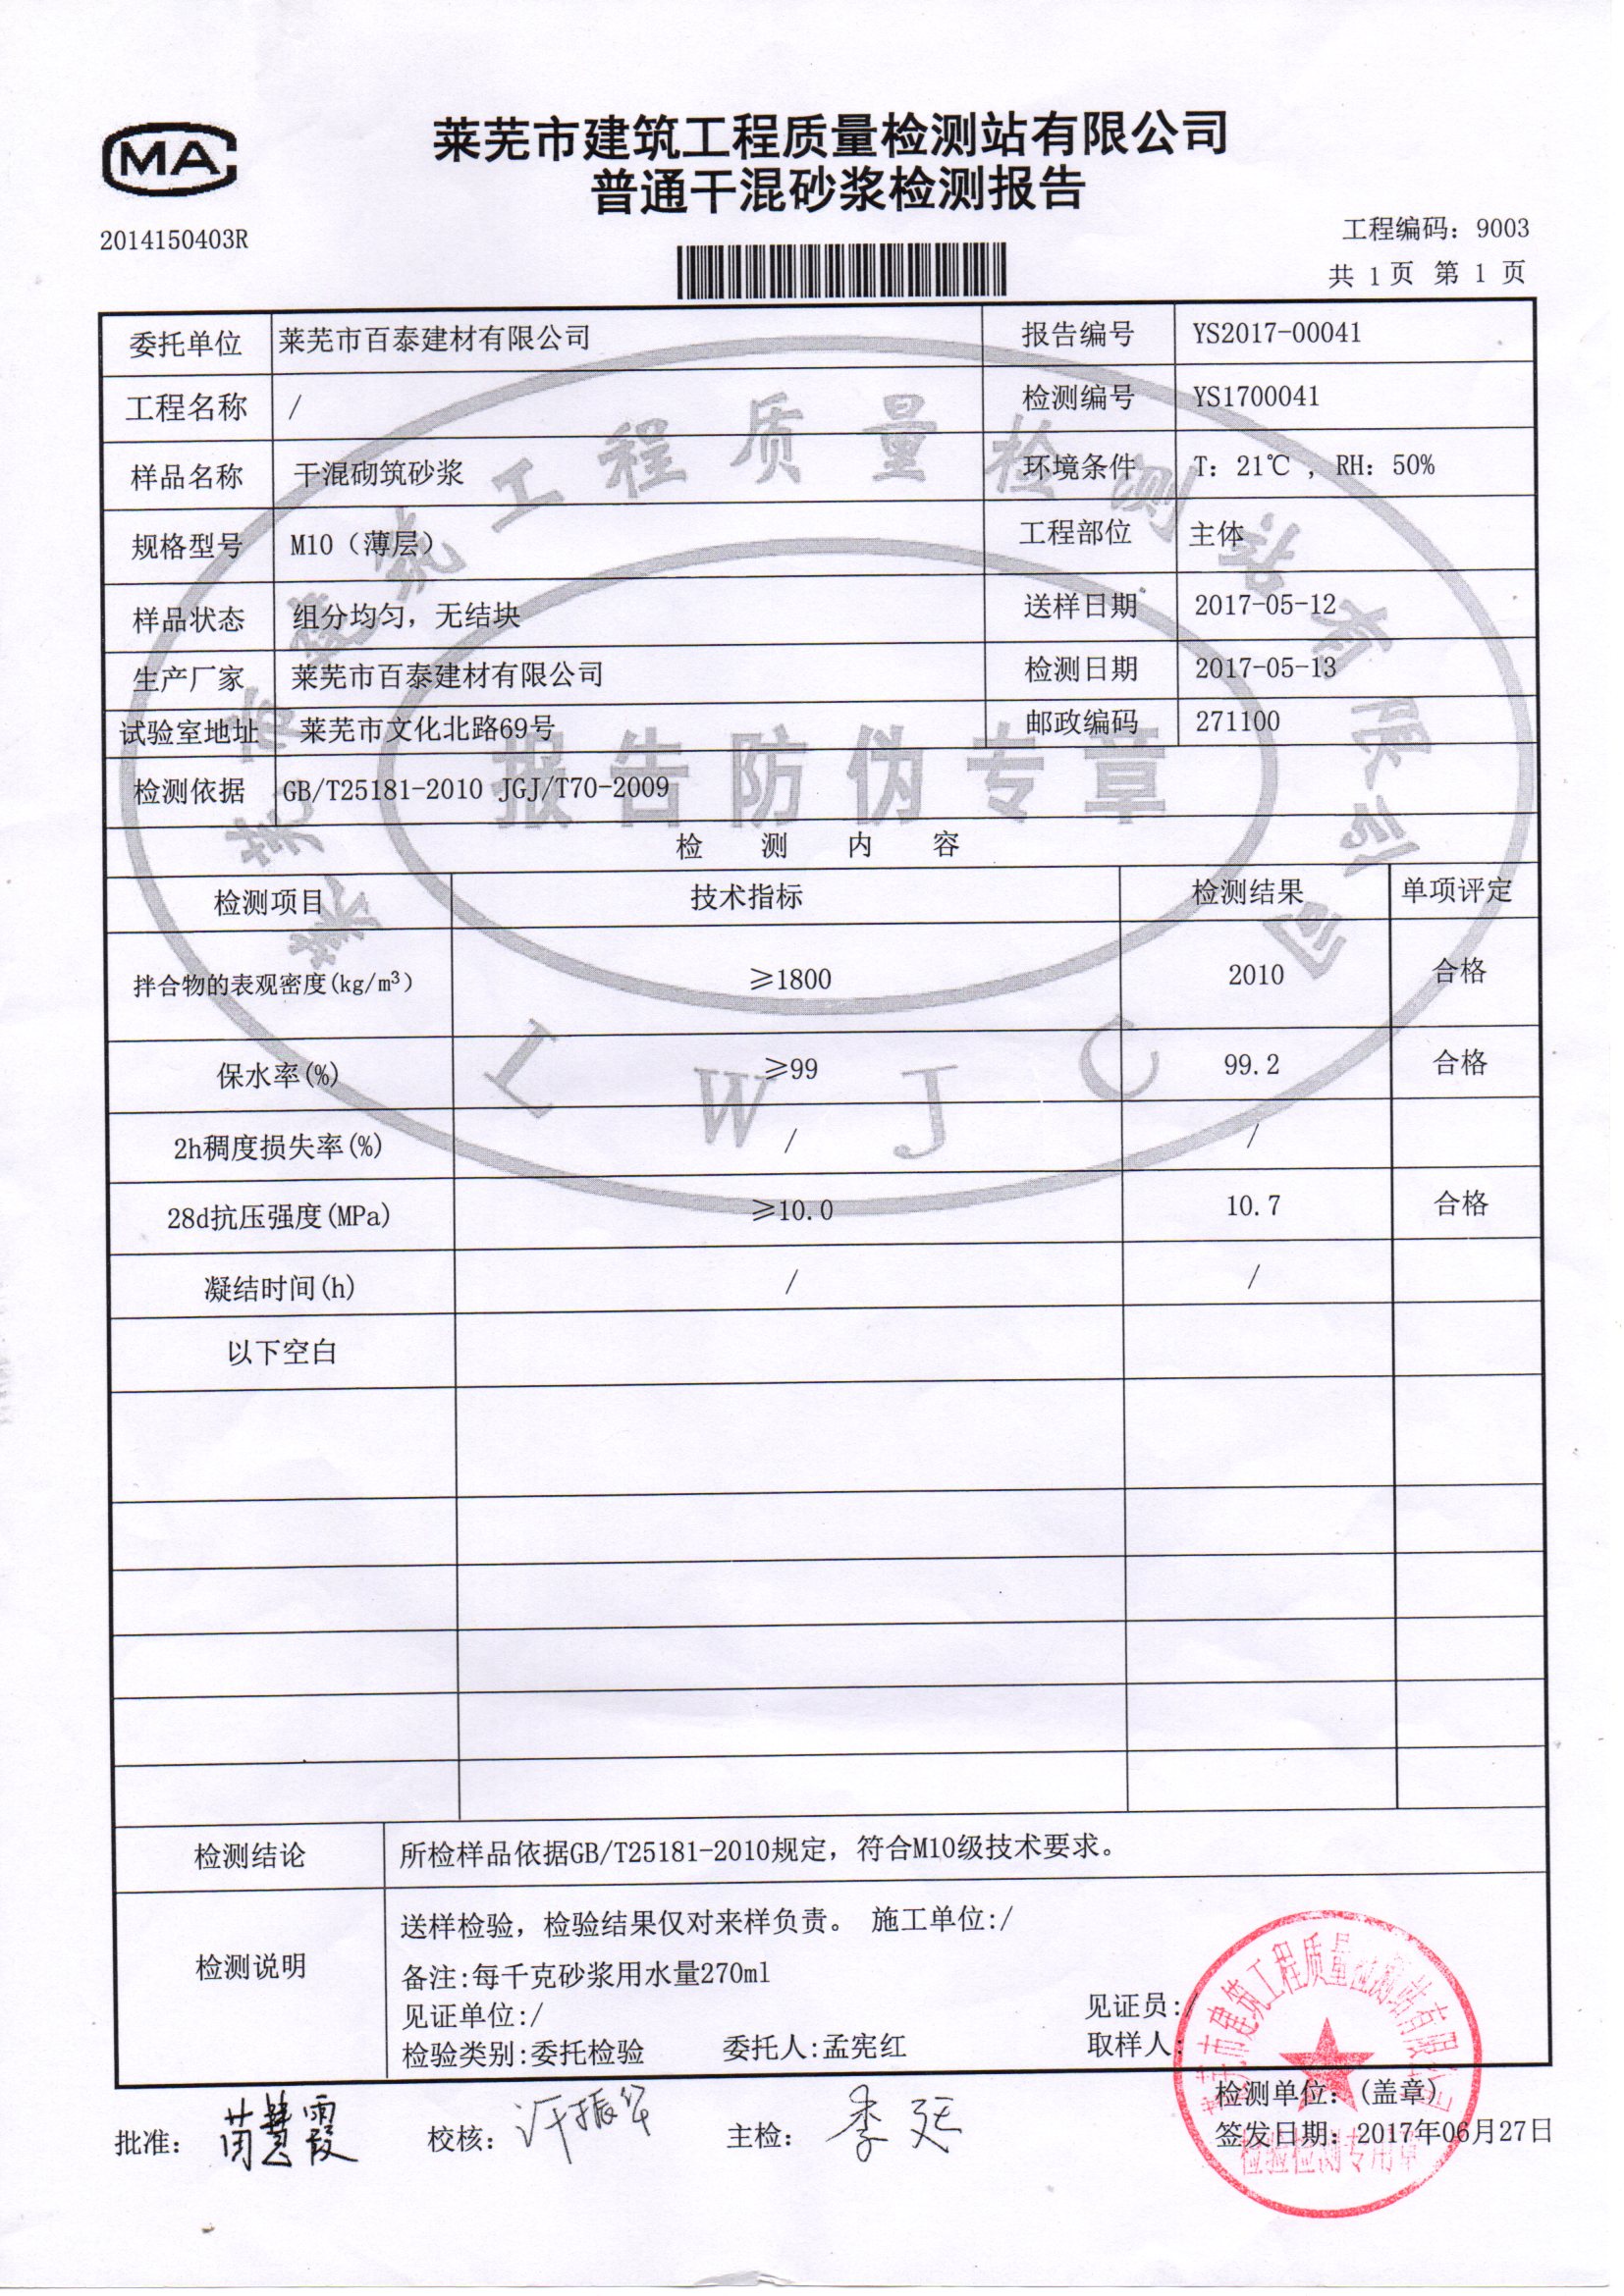 MA
莱芜市建筑工程质量检测站有限公司
普通干混砂浆检测报告
2014150403R
工程编码：9003
共 1 页 第 1 页
委托单位 莱芜市百泰建材有限公司 报告编号 YS2017-00041
工程名称 / 检测编号 YS1700041
样品名称 干混砌筑砂浆 环境条件 T：21℃ , RH：50%
规格型号 M10（薄层） 工程部位 主体
样品状态 组分均匀，无结块 送样日期 2017-05-12
生产厂家 莱芜市百泰建材有限公司 检测日期 2017-05-13
试验室地址 莱芜市文化北路69号 邮政编码 271100
检测依据 GB/T25181-2010 JGJ/T70-2009
检 测 内 容
检测项目 技术指标 检测结果 单项评定
拌合物的表观密度(kg/m³) ≥1800 2010 合格
保水率(%) ≥99 99.2 合格
2h稠度损失率(%) / /
28d抗压强度(MPa) ≥10.0 10.7 合格
凝结时间(h) / /
以下空白
检测结论 所检样品依据GB/T25181-2010规定，符合M10级技术要求。
检测说明
送样检验，检验结果仅对来样负责。 施工单位:/
备注:每千克砂浆用水量270ml
见证单位:/ 见证员:/
检验类别:委托检验 委托人:孟宪红 取样人:
检测单位：(盖章)
批准： 校核： 主检： 签发日期：2017年06月27日
莱芜市建筑工程质量检测站有限公司
报告防伪专章
LWJC
莱芜市建筑工程质量检测站有限公司
检验检测专用章